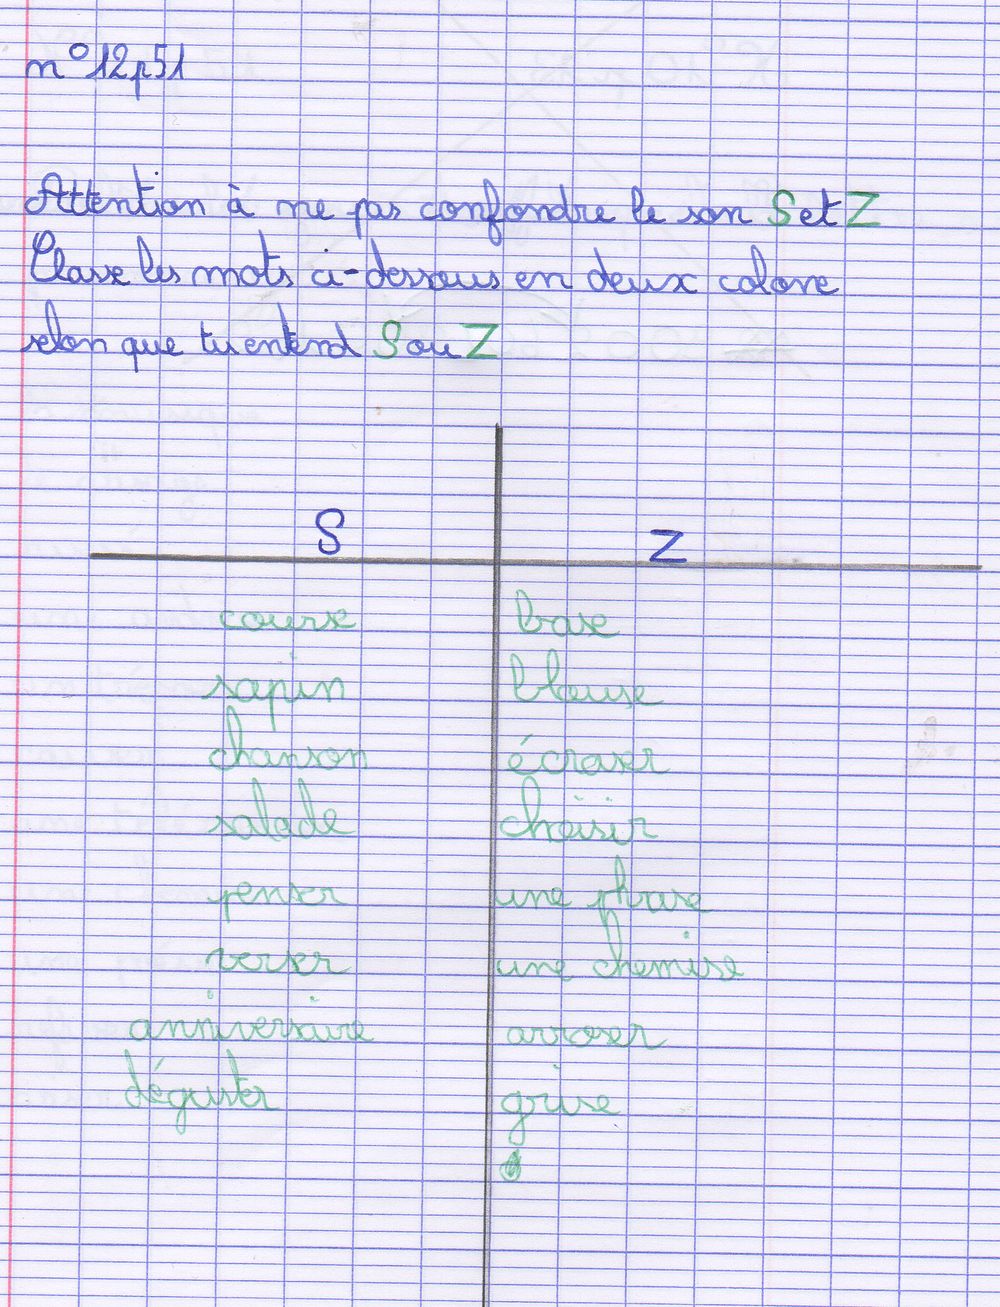 n°12p51
Attention à ne pas confondre le son S et Z
Classe les mots ci-dessous en deux colone
selon que tu entend S ou Z
S Z
course base
sapin blouse
chanson écraser
salade choisir
penser une phrase
verser une chemise
anniversaire arroser
déguster grise